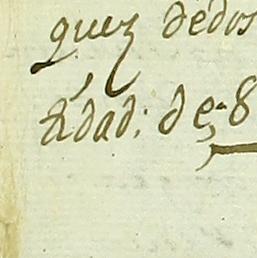 quez dedos
Edad; de 8